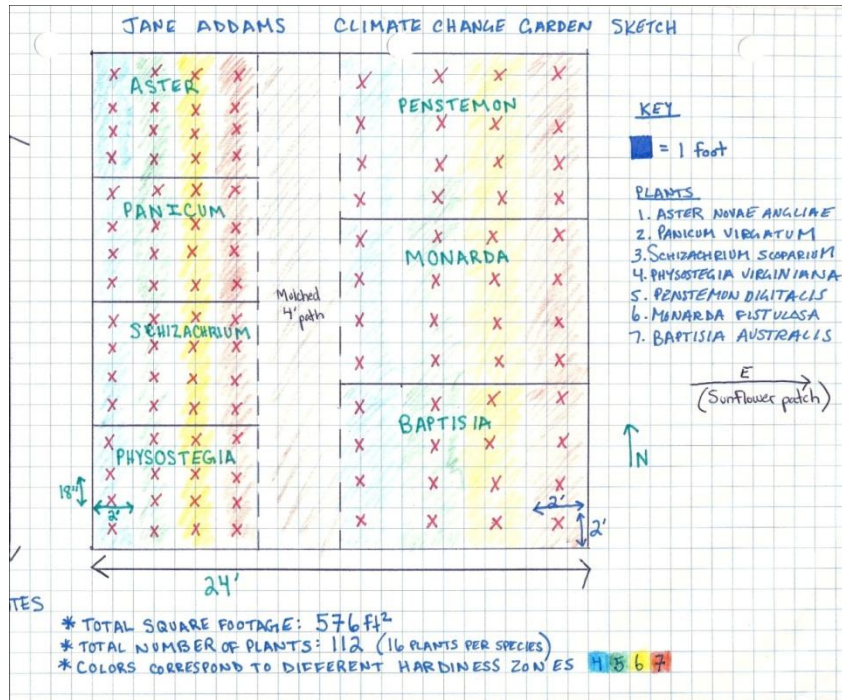 JANE ADDAMS CLIMATE CHANGE GARDEN SKETCH
ASTER
PANICUM
SCHIZACHRIUM
PHYSOSTEGIA
18"
2'
Mulched
4' path
PENSTEMON
MONARDA
BAPTISIA
2'
2'
KEY
= 1 foot
PLANTS
1. ASTER NOVAE ANGLIAE
2. PANICUM VIRGATUM
3. SCHIZACHRIUM SCOPARIUM
4. PHYSOSTEGIA VIRGINIANA
5. PENSTEMON DIGITALIS
6. MONARDA FISTULOSA
7. BAPTISIA AUSTRALIS
E
(Sunflower patch)
N
24'
TES
* TOTAL SQUARE FOOTAGE: 576 ft²
* TOTAL NUMBER OF PLANTS: 112 (16 PLANTS PER SPECIES)
* COLORS CORRESPOND TO DIFFERENT HARDINESS ZONES 4 5 6 7